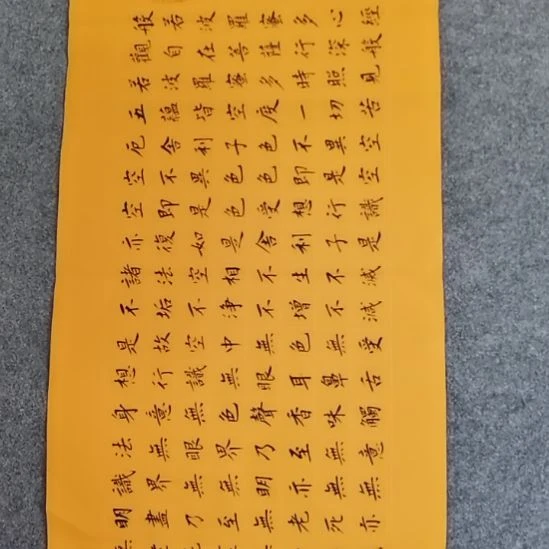 般若波羅蜜多心經
觀自在菩薩行深般
若波羅蜜多時照見
五蘊皆空度一切苦
厄舍利子色不異空
空不異色色即是空
空即是色受想行識
亦復如是舍利子是
諸法空相不生不滅
不垢不淨不增不減
是故空中無色無受
想行識無眼耳鼻舌
身意無色聲香味觸
法無眼界乃至無意
識界無無明亦無無
明盡乃至無老死亦